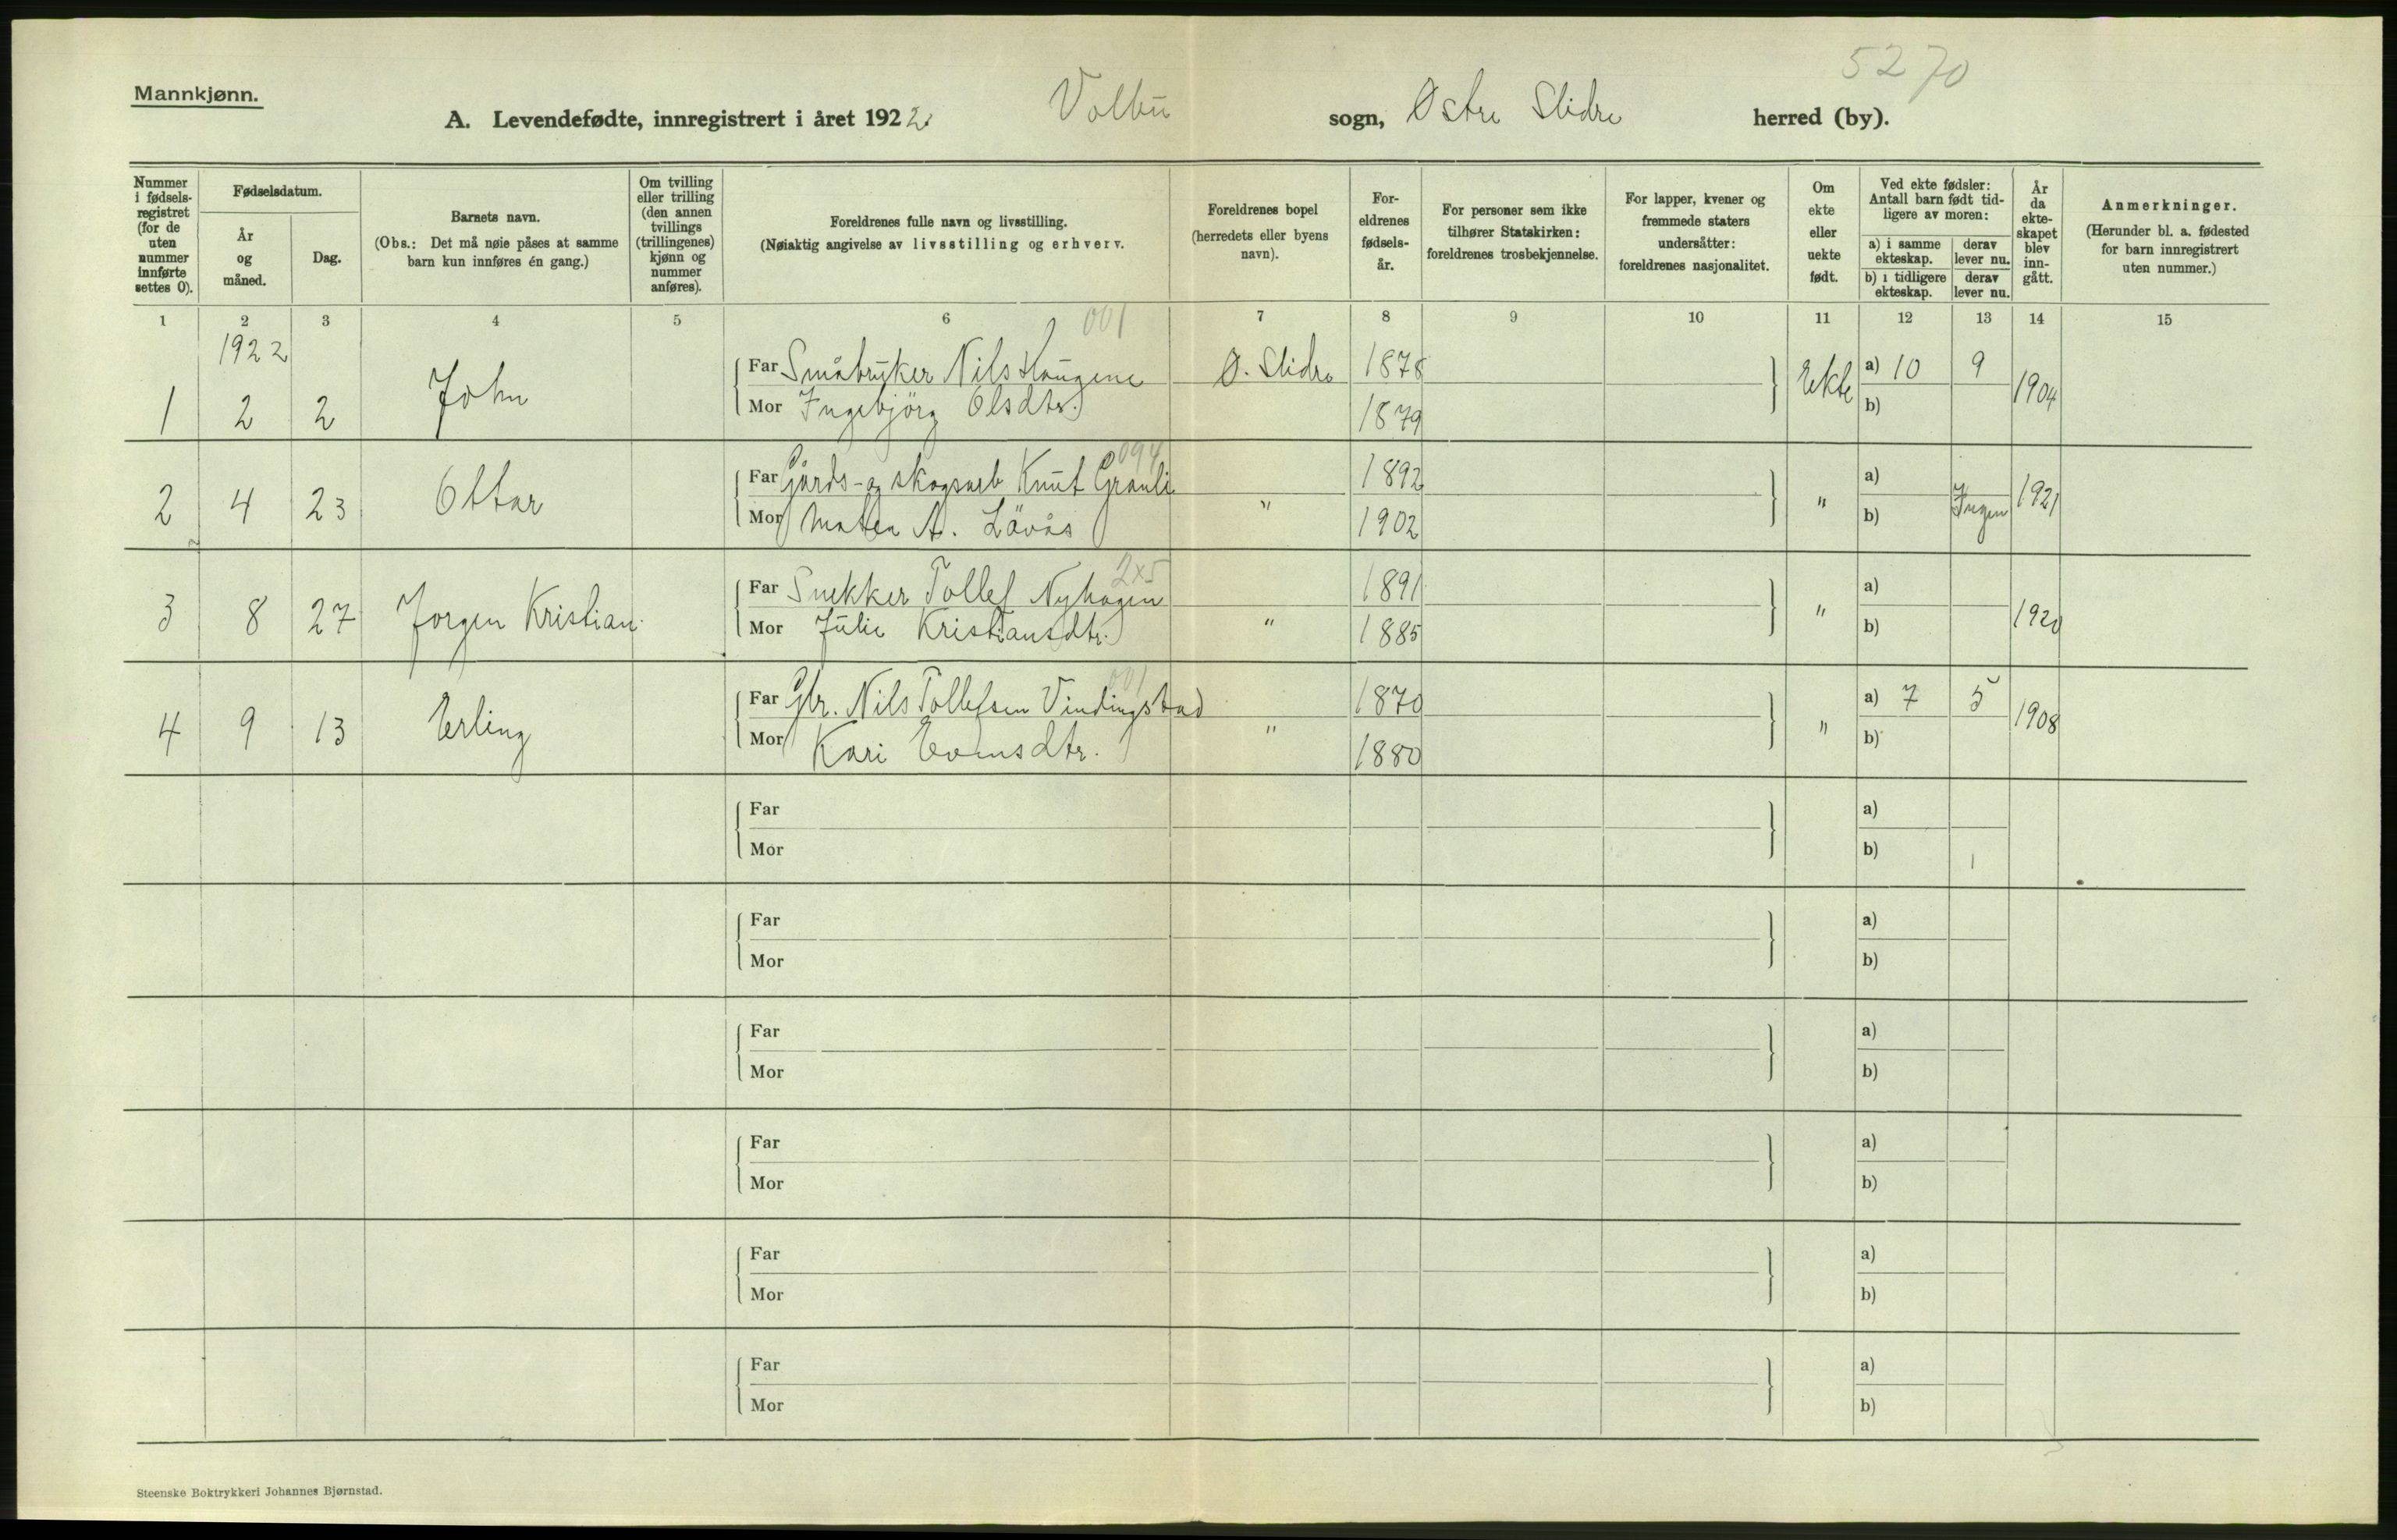 5270
Mannkjønn.
A. Levendefødte, innregistrert i året 1922. Volbu sogn, Østre Slidre herred (by).
Nummer i fødsels-registret (for de uten nummer innførte settes 0).
Fødselsdatum.
År og måned.
Dag.
Barnets navn.
(Obs.: Det må nøie påses at samme barn kun innføres én gang.)
Om tvilling eller trilling (den annen tvillings (trillingenes) kjønn og nummer anføres).
Foreldrenes fulle navn og livsstilling.
(Nøiaktig angivelse av livsstilling og erhverv.
Foreldrenes bopel (herredets eller byens navn).
For-eldrenes fødsels-år.
For personer som ikke tilhører Statskirken: foreldrenes trosbekjennelse.
For lapper, kvener og fremmede staters undersåtter: foreldrenes nasjonalitet.
Om ekte eller uekte født.
Ved ekte fødsler: Antall barn født tid-ligere av moren:
a) i samme ekteskap.
derav lever nu.
b) i tidligere ekteskap.
derav lever nu.
År da ekte-skapet blev inn-gått.
Anmerkninger.
(Herunder bl. a. fødested for barn innregistrert uten nummer.)
1 2 3 4 5 6 7 8 9 10 11 12 13 14 15
1922 001
Far Småbruker Nils Haugene Ø. Slidre 1878 a) 10 9
1 2 2 John Ekte 1904
Mor Ingebjörg Olsdtr. 1879 b)
094
Far Gårds- og skogsarb Knut Granli 1892 a)
2 4 23 Ottar " " Ingen 1921
Mor Matea A. Lövås 1902 b)
2x5
Far Snekker Tollef Nyhagen 1891 a)
3 8 27 Jorgen Kristian " " 1920
Mor Julie Kristiansdtr. 1885 b)
001
Far Gbr. Nils Tollefsen Vindingstad 1870 a) 7 5
4 9 13 Erling " " 1908
Mor Kari Evensdtr. 1880 b)
Far a)
Mor b)
Far a)
Mor b)
Far a)
Mor b)
Far a)
Mor b)
Far a)
Mor b)
Far a)
Mor b)
Steenske Boktrykkeri Johannes Bjørnstad.